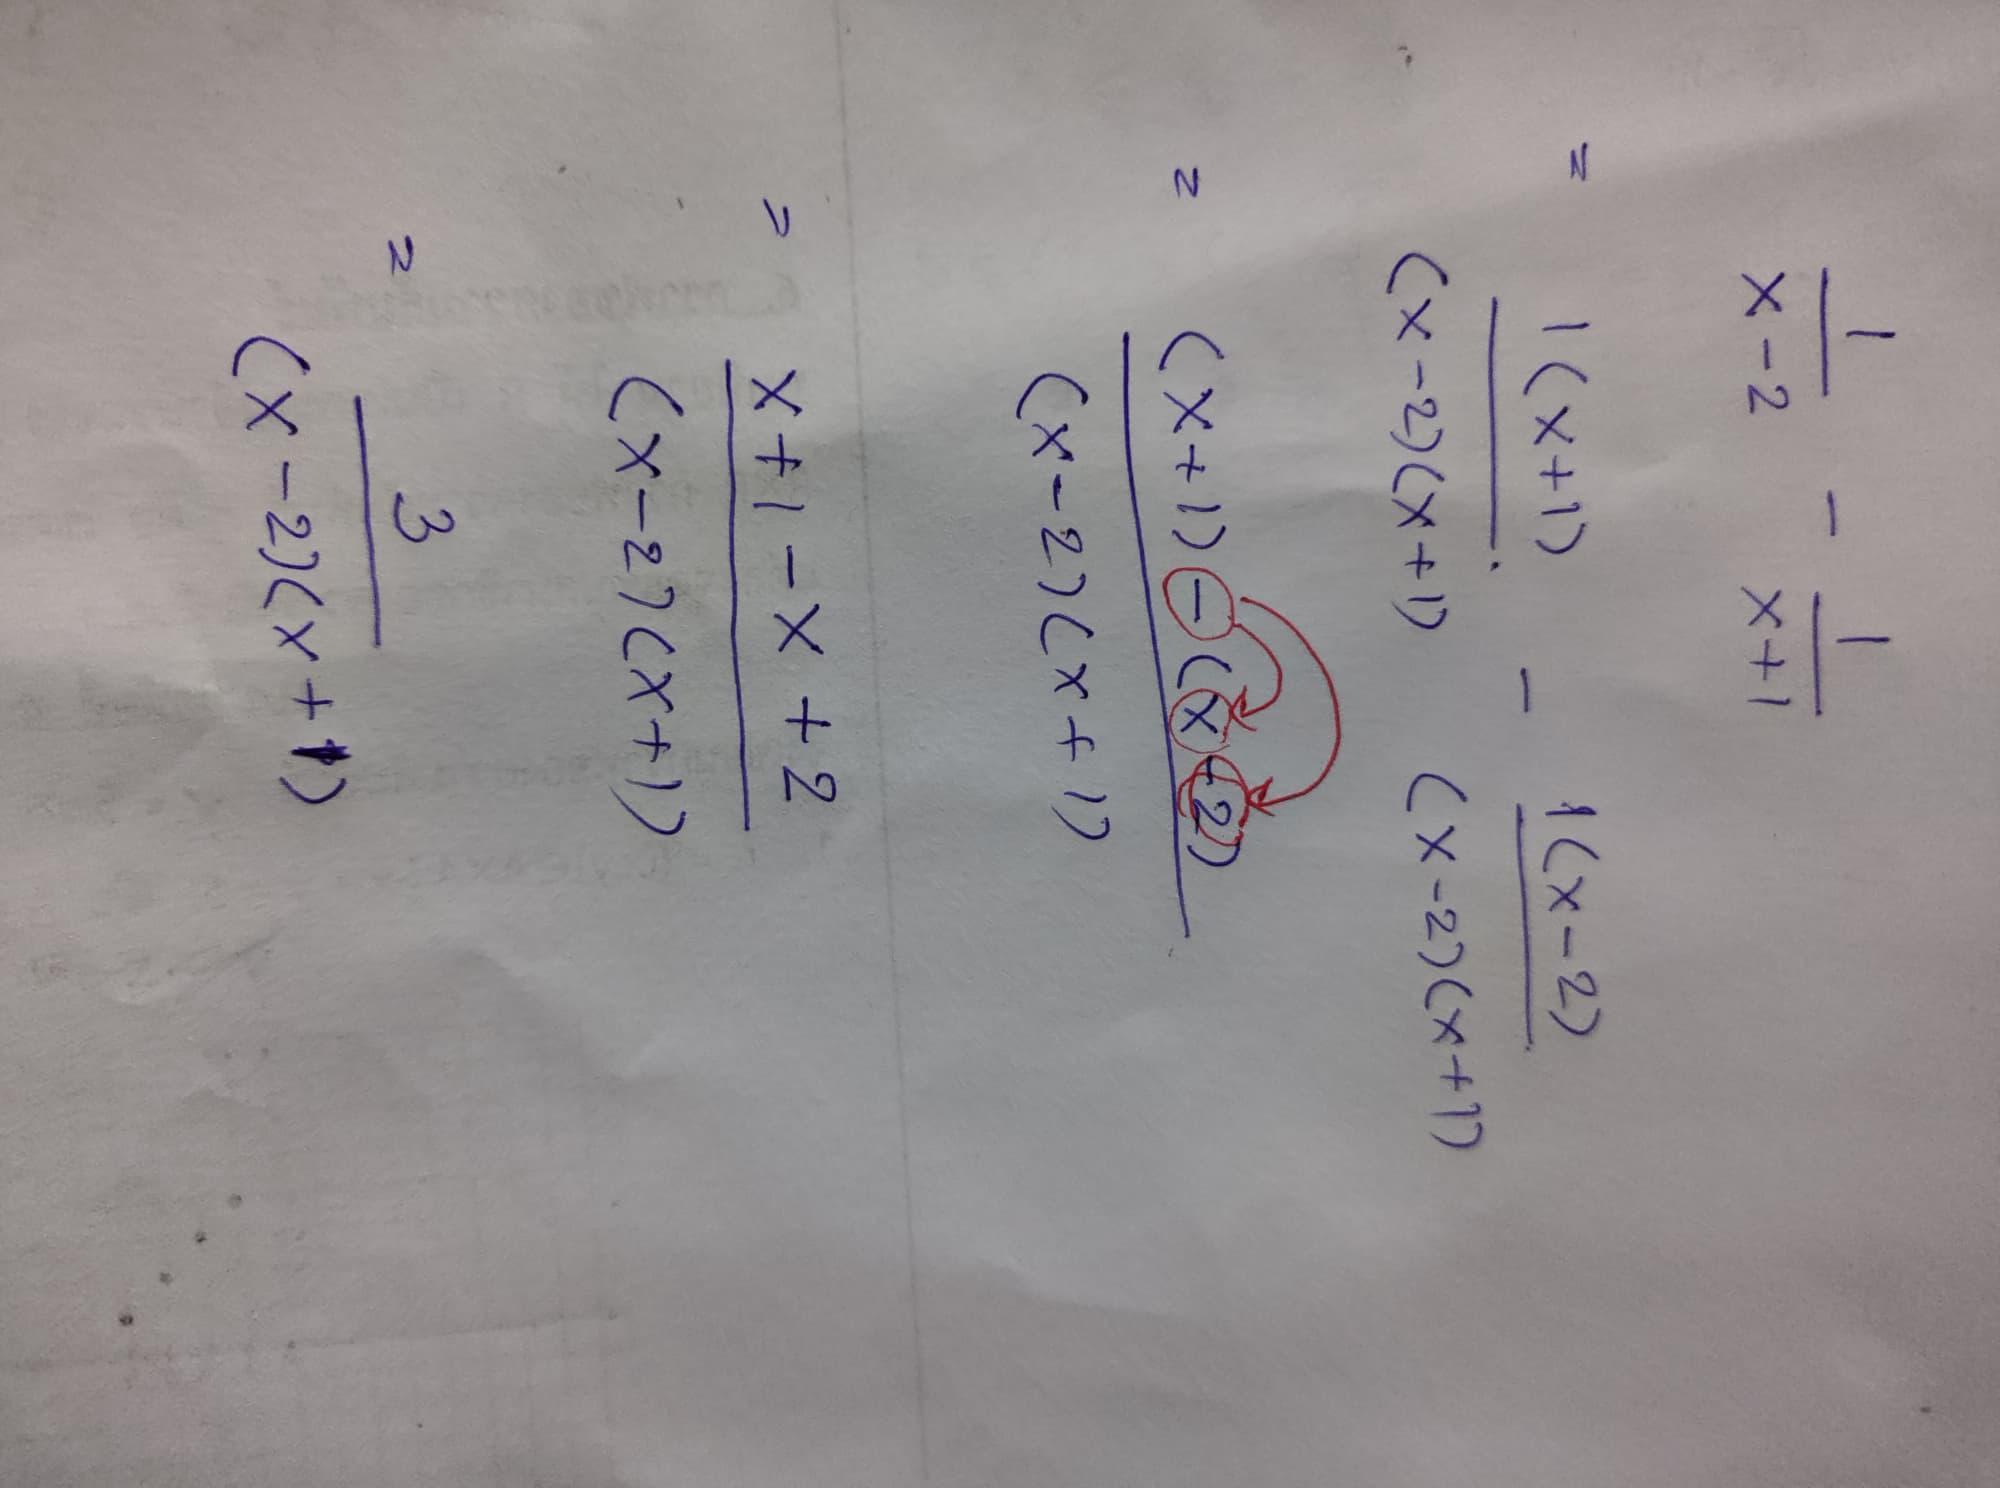 1/(x-2) - 1/(x+1)
= 1(x+1)/((x-2)(x+1)) - 1(x-2)/((x-2)(x+1))
= ((x+1)-(x-2))/((x-2)(x+1))
= (x+1-x+2)/((x-2)(x+1))
= 3/((x-2)(x+1))